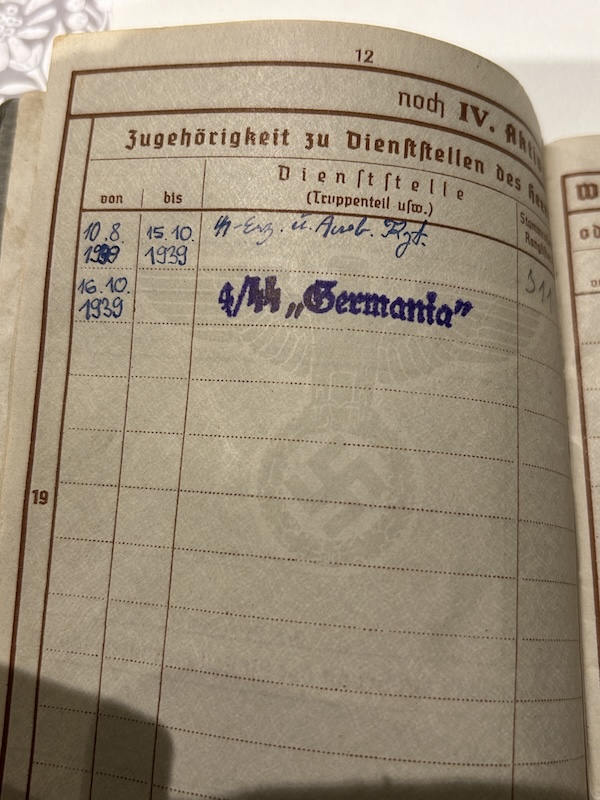 12
noch IV. Akti
Zugehörigkeit zu Dienststellen des Heer
von
bis
Dienststelle
(Truppenteil usw.)
Stamm
Rangl
10.8.
15.10.
ᛋᛋ-Erg. u. Ausb. Rgt.
1939
1939
16.10.
1939
4/ᛋᛋ „Germania”
19
W
od